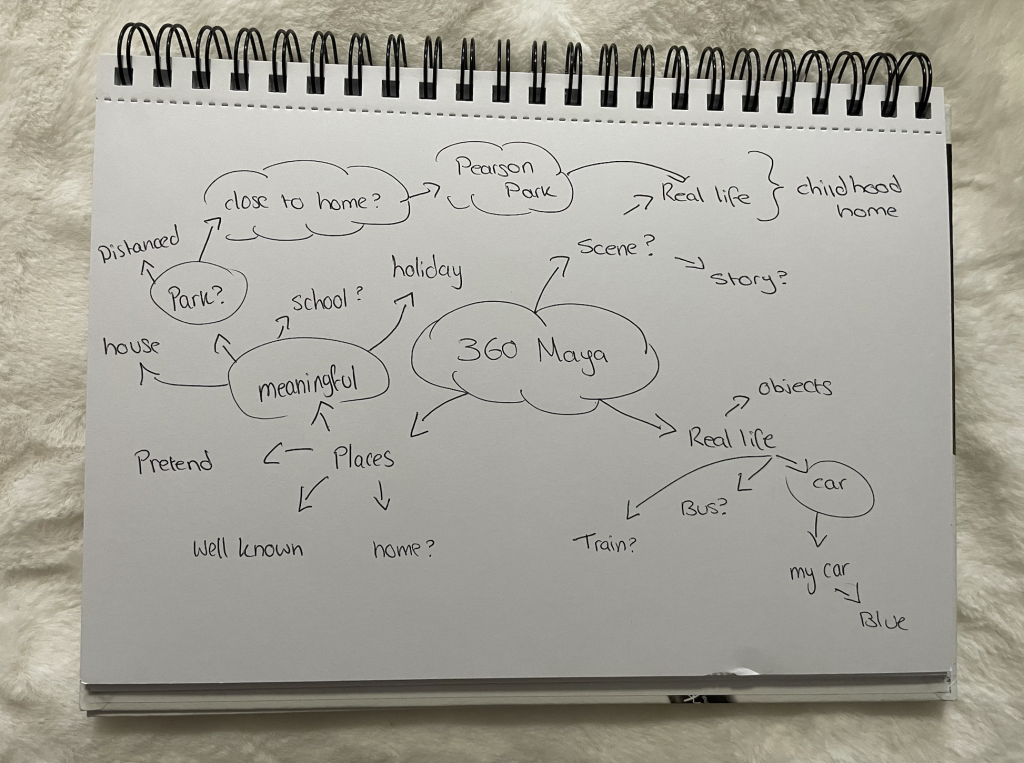 Pearson
Park
close to home?
Real life
childhood
home
Distanced
Scene?
story?
Park?
holiday
school?
house
360 Maya
meaningful
objects
Real life
Pretend
Places
car
Bus?
Train?
Well known
home?
my car
Blue